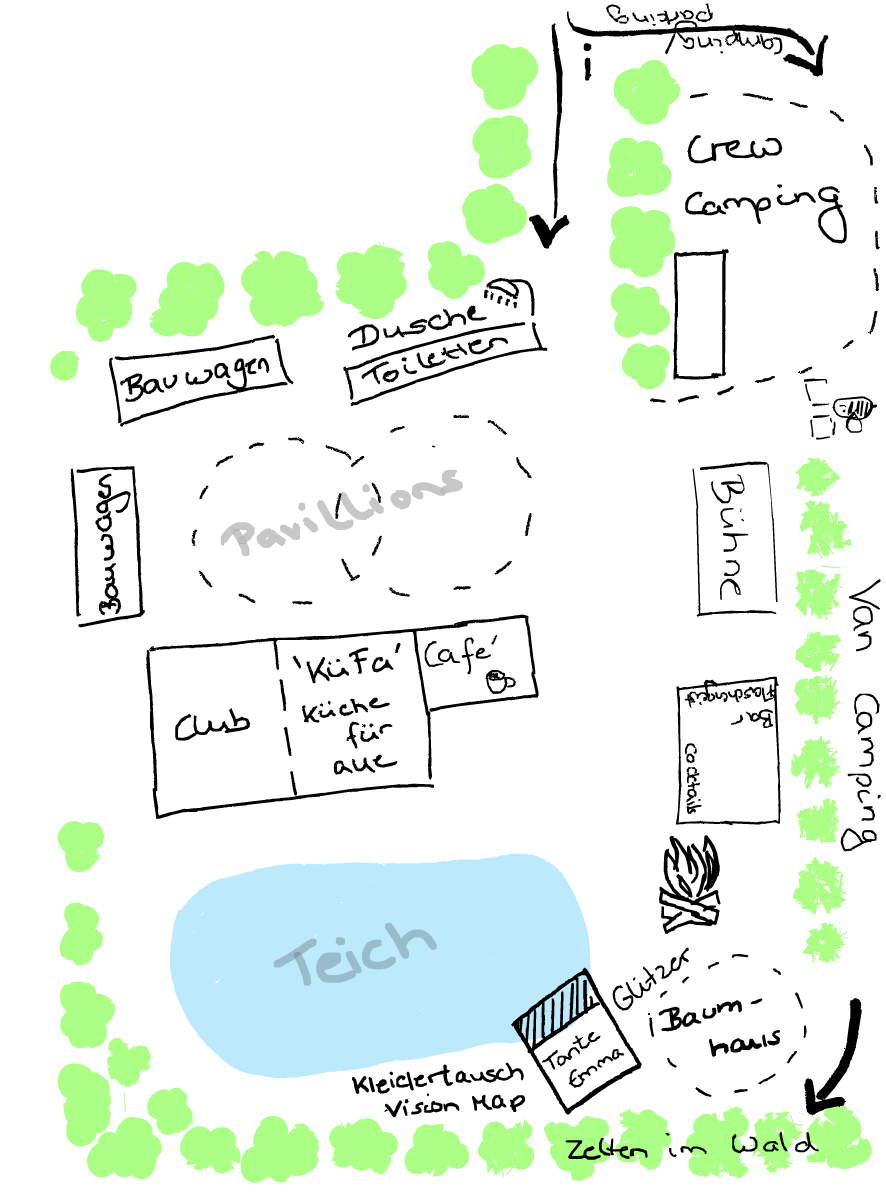 parking
camping/
i
Crew
Camping
Dusche
Toiletten
Bauwagen
Bauwagen
Pavillions
Bühne
Van Camping
'KüFa'
Küche
für
alle
Club
Café
Flaschengeist
Bar
Cocktails
Teich
Glitzer
i
Baum-
haus
Tante
Emma
Kleidertausch
Vision Map
Zelten im Wald